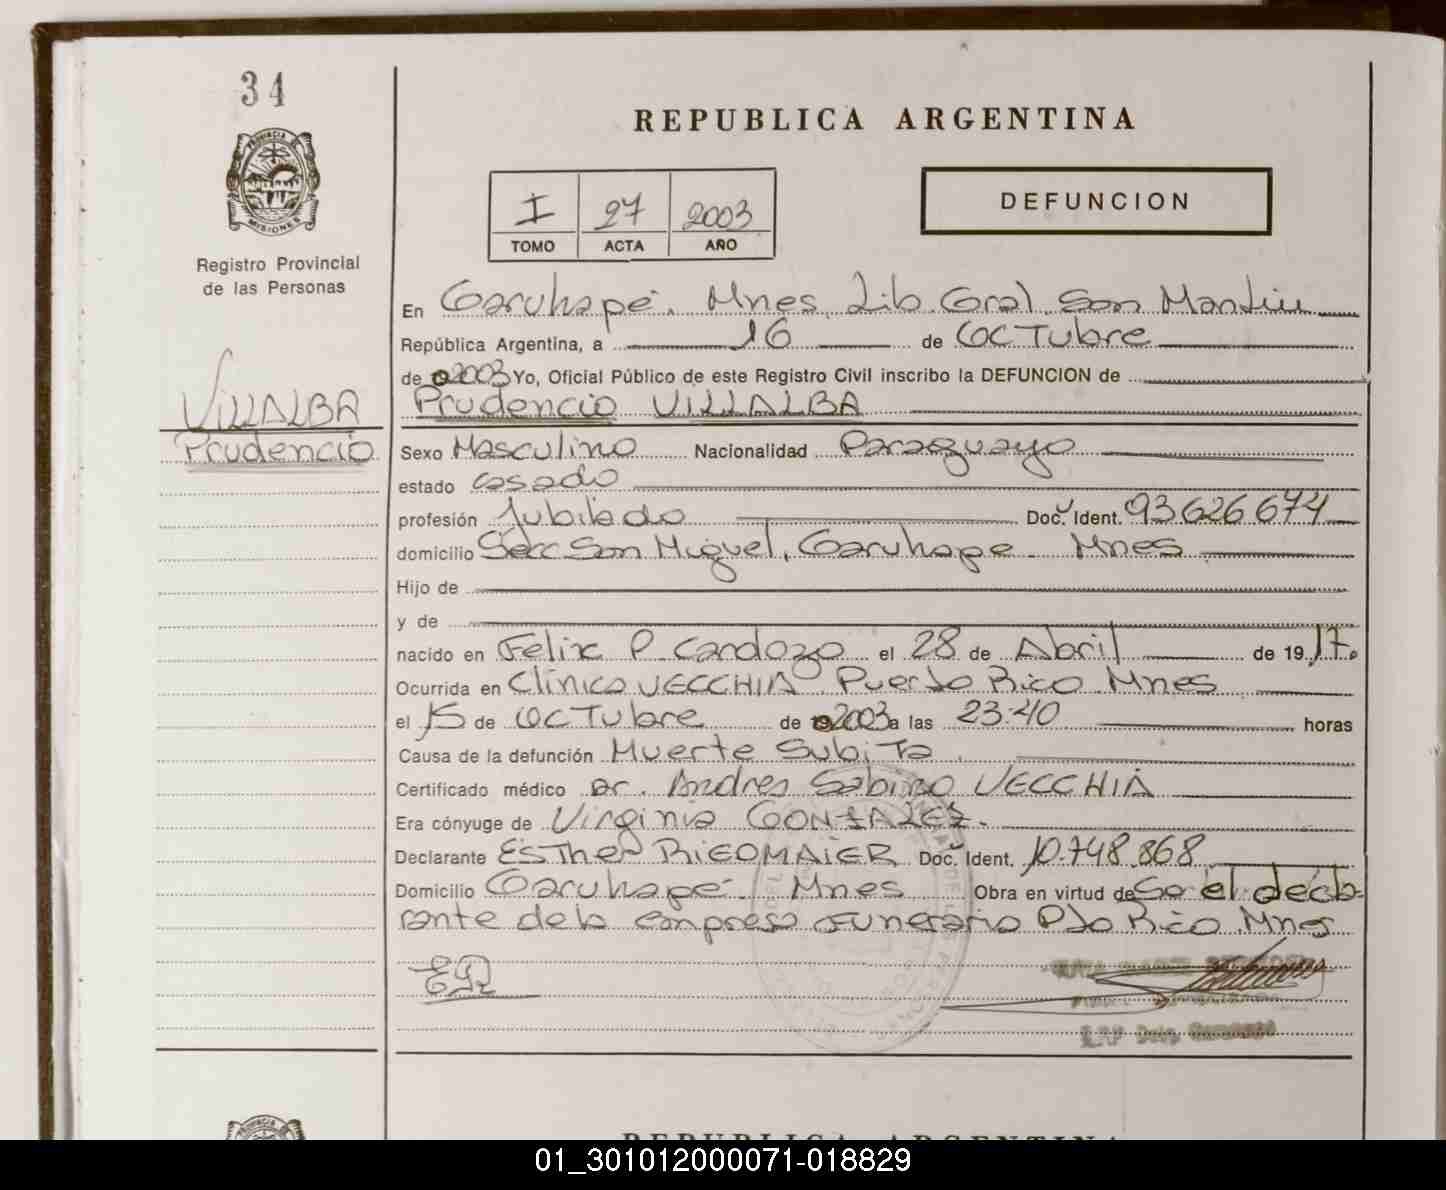 34
PROVINCIA DE
MISIONES
Registro Provincial
de las Personas
REPUBLICA ARGENTINA
I 27 2003
TOMO ACTA AÑO
DEFUNCION
En Garuhapé. Mnes, Lib. Gral. San Martín
República Argentina, a 16 de OCTubre
de 2003 Yo, Oficial Público de este Registro Civil inscribo la DEFUNCION de
Prudencio VILLALBA
VILLALBA
Prudencio
Sexo Masculino Nacionalidad Paraguayo
estado casado
profesión Jubilado Doc. Ident. 93626674
domicilio Secc San Miguel, Garuhape Mnes
Hijo de
y de
nacido en Felix P. Cardozo el 28 de Abril de 1917.
Ocurrida en Clinica VECCHIA Puerto Rico Mnes
el 15 de OCTubre de 2003 a las 23:40 horas
Causa de la defunción Muerte SubiTa
Certificado médico Dr. Andres Sabino VECCHIA
Era cónyuge de Virginia GONZALEZ.
Declarante ESTher RIEDMAIER Doc. Ident. 10.748.868
Domicilio Garuhapé Mnes Obra en virtud de Ser el decla-
rante de la empresa Funeraria Pto Rico Mnes
ER
REPUBLICA ARGENTINA
01_301012000071-018829